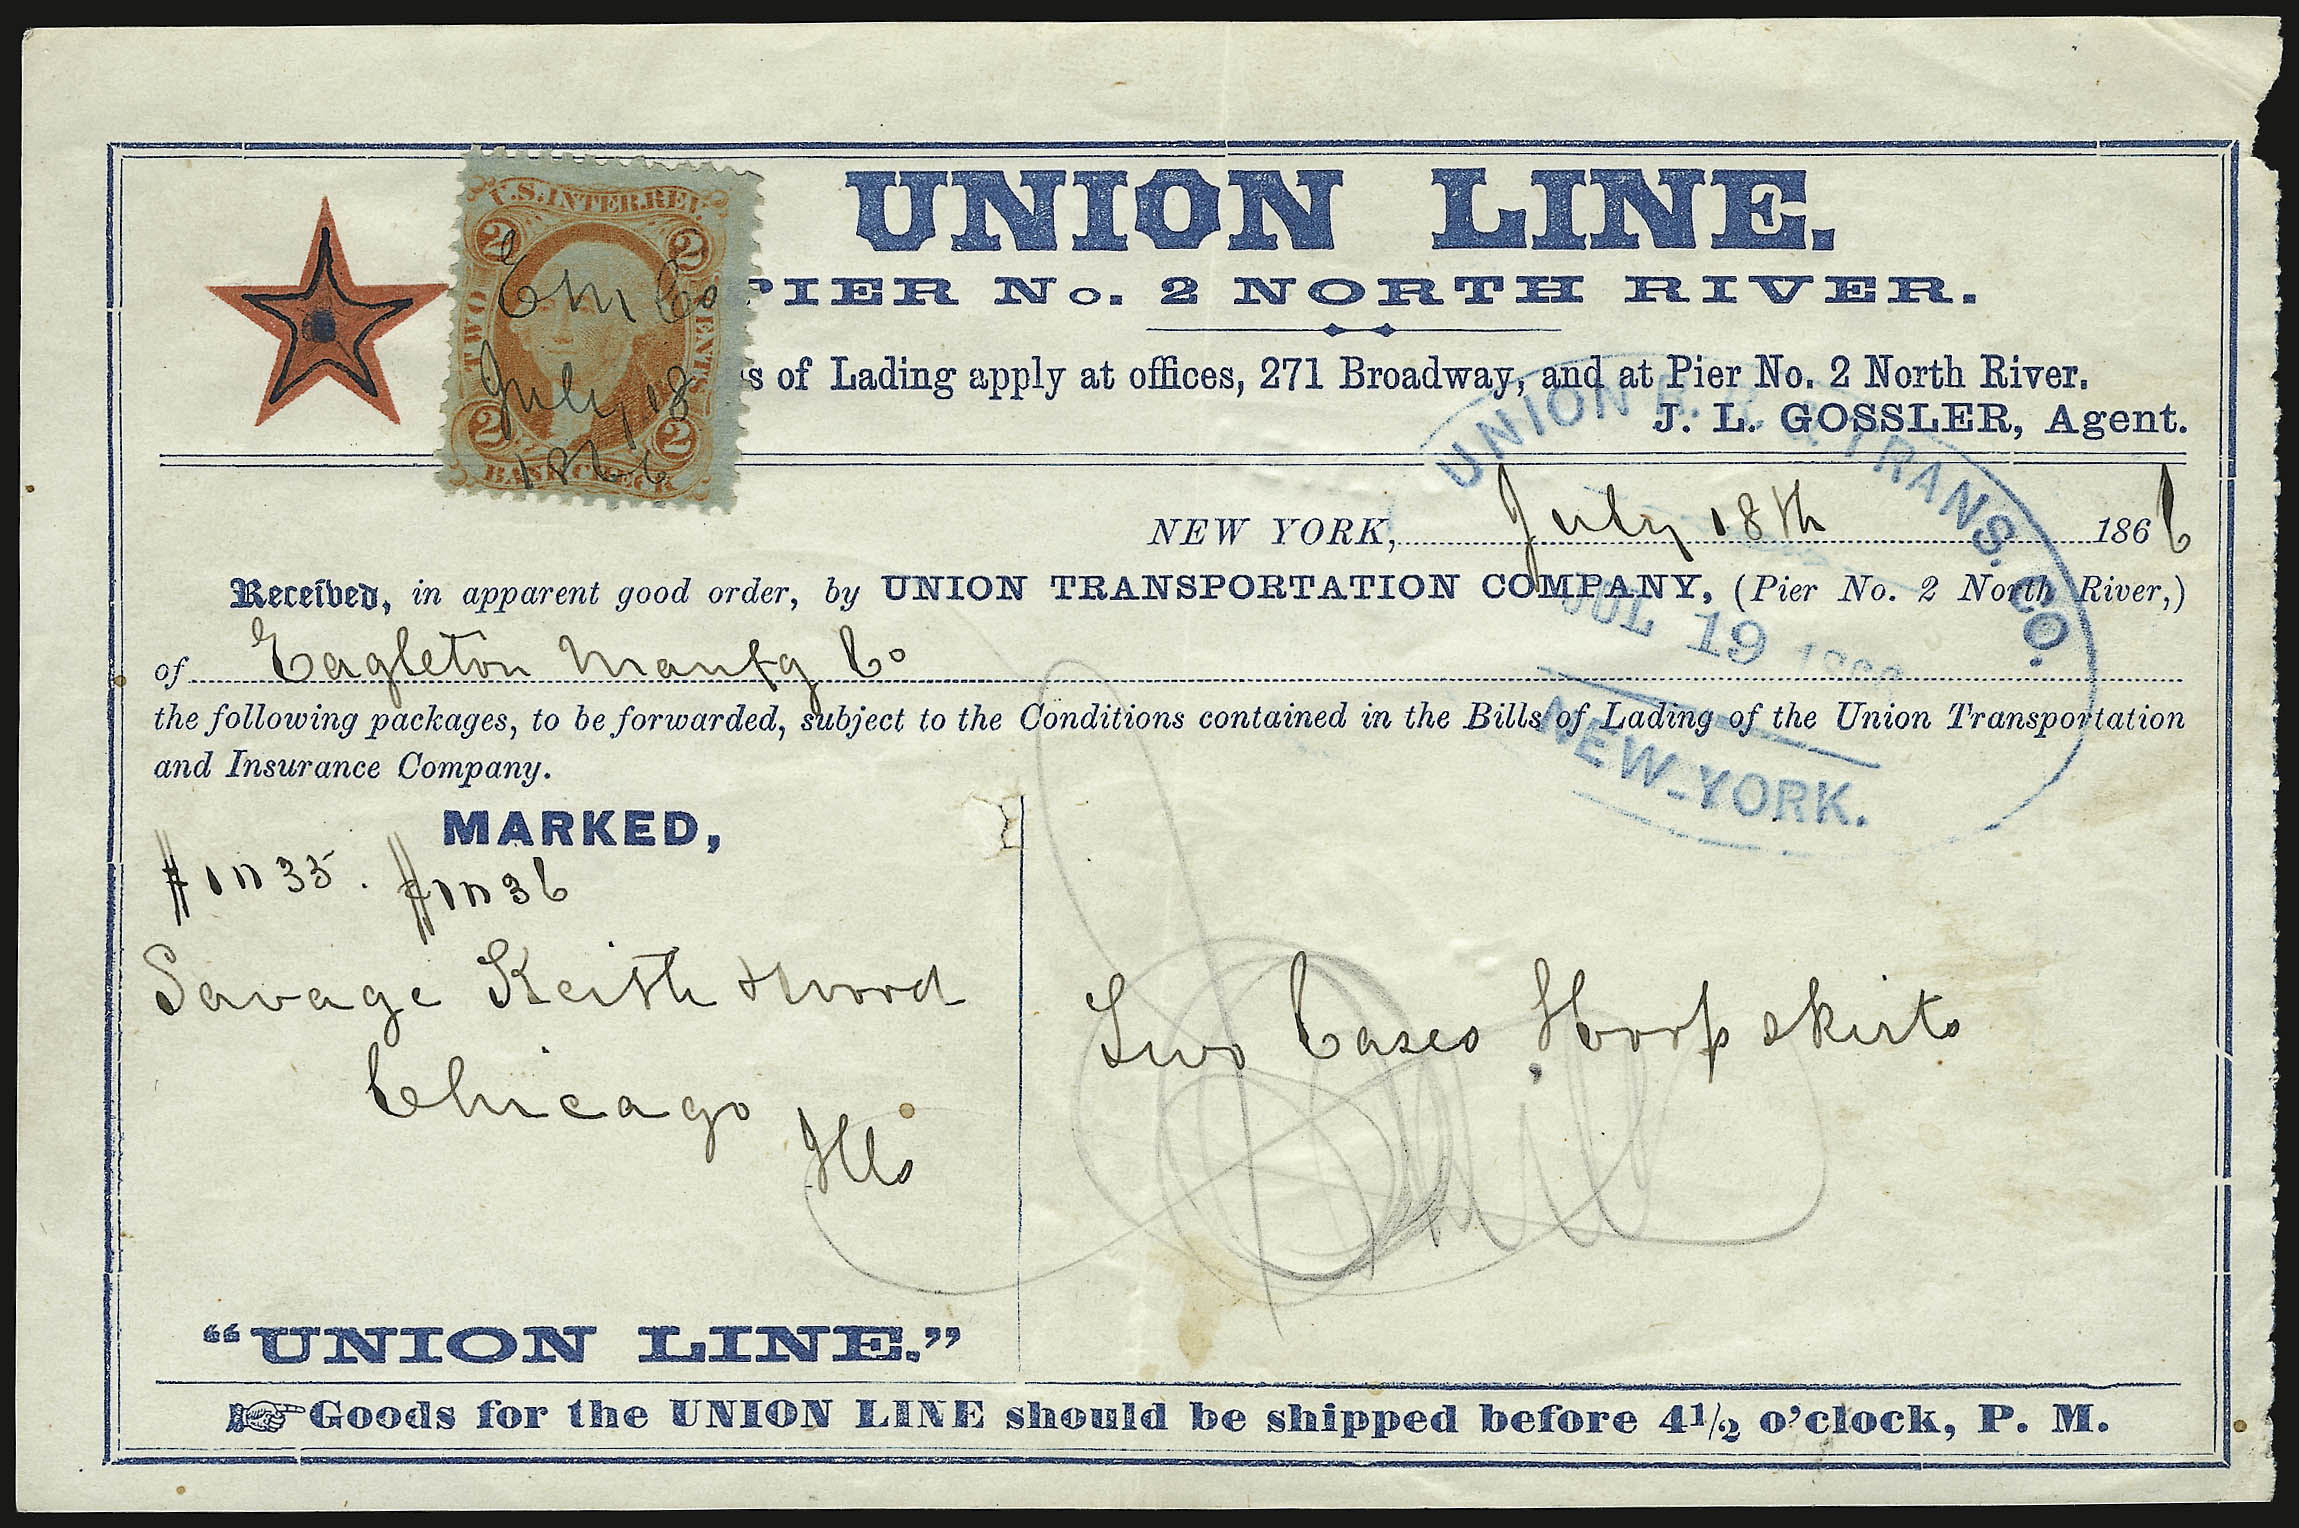 UNION LINE.
PIER No. 2 NORTH RIVER.
s of Lading apply at offices, 271 Broadway, and at Pier No. 2 North River.
J. L. GOSSLER, Agent.
U.S. INTER. REV.
2 2
TWO CENTS
2 2
BANK CHECK
E M Co
July 18
1866
UNION R. R. & TRANS. CO.
JUL 19 1866
NEW-YORK.
NEW YORK, July 18th 1866
Received, in apparent good order, by UNION TRANSPORTATION COMPANY, (Pier No. 2 North River,)
of Eagleton Manfg Co
the following packages, to be forwarded, subject to the Conditions contained in the Bills of Lading of the Union Transportation
and Insurance Company.
MARKED,
Savage Keith & Wood
Chicago
Ills
Two Cases Hoop skirts
"UNION LINE."
Goods for the UNION LINE should be shipped before 4½ o'clock, P. M.